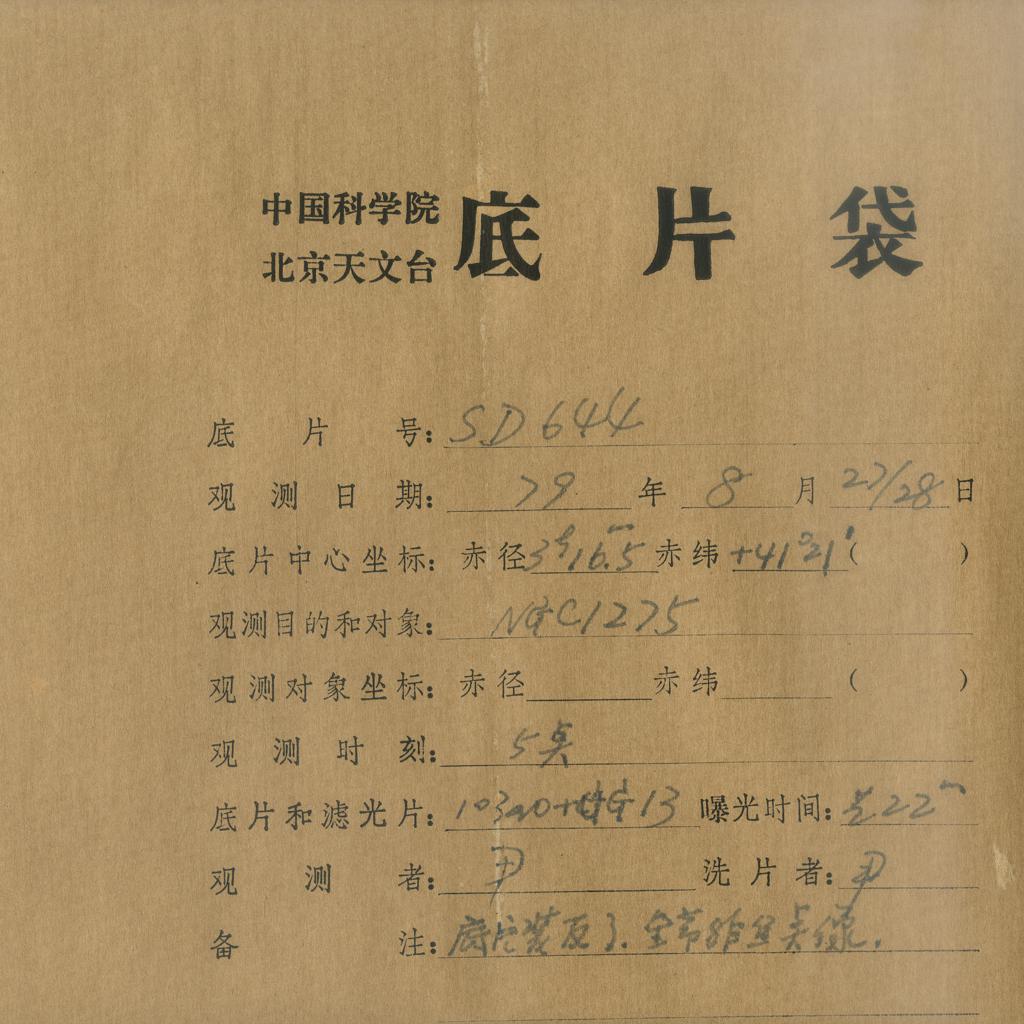 中国科学院
北京天文台
底片袋
底片号：SD644
观测日期：79年8月27/28日
底片中心坐标：赤径3ʰ16.5ᵐ赤纬+41°21′（ ）
观测目的和对象：NGC1275
观测对象坐标：赤径 赤纬 （ ）
观测时刻：5
底片和滤光片：GG13 曝光时间：22ᵐ
观测者：尹 洗片者：尹
备注：底片装反了.